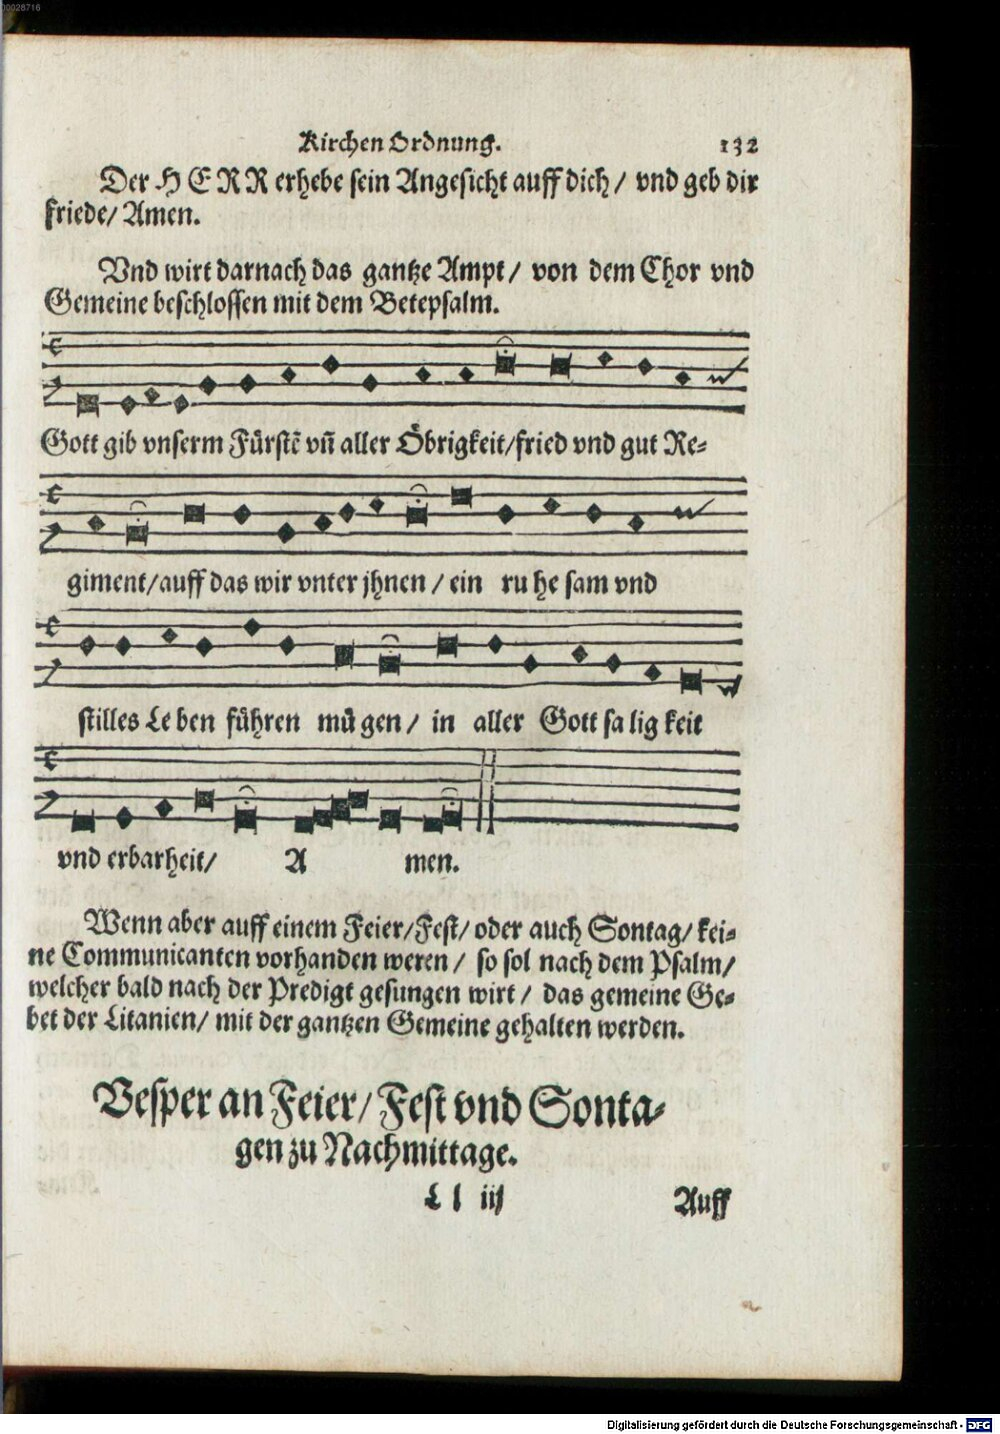 00028716
Kirchen Ordnung. 132
Der HERR erhebe sein Angesicht auff dich / vnd geb dir
friede / Amen.
Vnd wirt darnach das gantze Ampt / von dem Chor vnd
Gemeine beschlossen mit dem Betepsalm.
Gott gib vnserm Fürstē vn̄ aller Öbrigkeit/fried vnd gut Re⸗
giment/auff das wir vnter jhnen / ein ru he sam vnd
stilles Le ben führen mü gen / in aller Gott sa lig keit
vnd erbarheit/ A men.
Wenn aber auff einem Feier/Fest/ oder auch Sontag/ kei⸗
ne Communicanten vorhanden weren / so sol nach dem Psalm/
welcher bald nach der Predigt gesungen wirt / das gemeine Ge⸗
bet der Litanien/ mit der gantzen Gemeine gehalten werden.
Vesper an Feier/ Fest vnd Sonta⸗
gen zu Nachmittage.
L l iij Auff
Digitalisierung gefördert durch die Deutsche Forschungsgemeinschaft - DFG